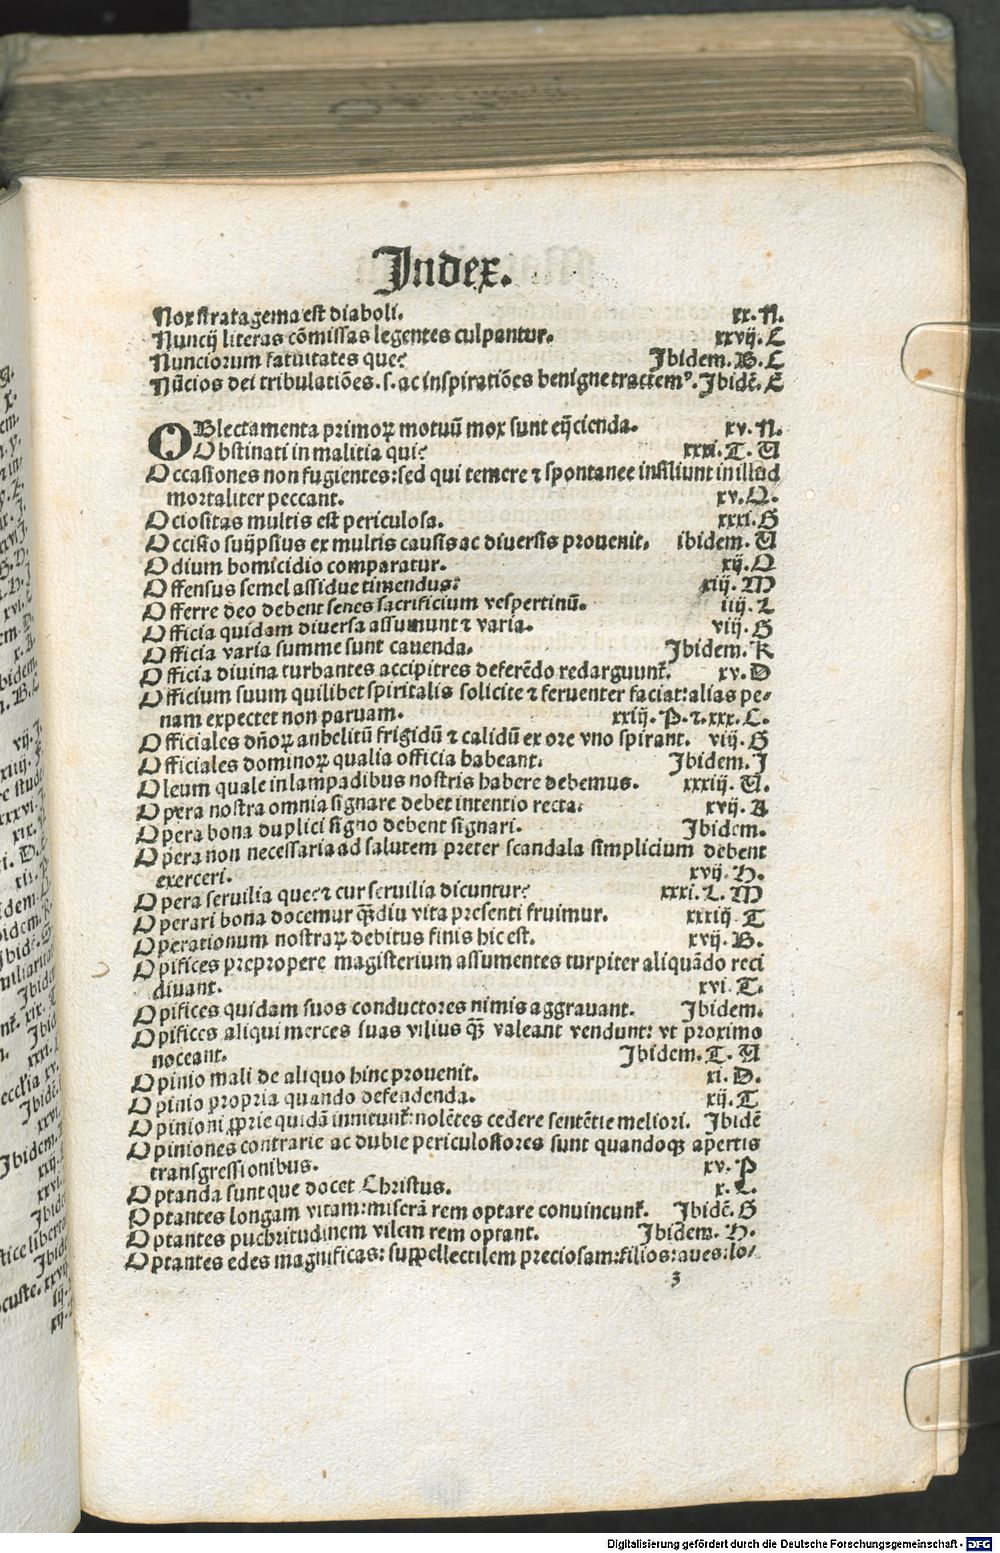 Index.
Nox stratagema est diaboli. xx. N.
Nuncij literas cōmissas legentes culpantur. xxvij. C
Nunciorum fatuitates que? Ibidem. B. C
Nūcios dei tribulatiōes .s. ac inspiratiōes benigne tractemꝰ. Ibidē. E
OBlectamenta primoꝝ motuū mox sunt eijcienda. xv. N.
Obstinati in malitia qui? xxxi. T. U
Occasiones non fugientes: sed qui temere ⁊ spontanee insiliunt in illud
mortaliter peccant. xv. O.
Ociositas multis est periculosa. xxxi. G
Occisio suijpsius ex multis causis ac diuersis prouenit. ibidem. U
Odium homicidio comparatur. xij. O
Offensus semel assidue timendus? xiij. M
Offerre deo debent senes sacrificium vespertinū. iiij. L
Officia quidam diuersa assumunt ⁊ varia. viij. G
Officia varia summe sunt cauenda. Ibidem. K
Officia diuina turbantes accipitres deferēdo redarguunt᷑. xv. D
Officium suum quilibet spiritalis solicite ⁊ feruenter faciat: alias pe⸗
nam expectet non paruam. xxiij. P. ⁊. xxx. C.
Officiales dn̄oꝝ anhelitū frigidū ⁊ calidū ex ore vno spirant. viij. G
Officiales dominoꝝ qualia officia habeant. Ibidem. I
Oleum quale in lampadibus nostris habere debemus. xxxiij. U.
Opera nostra omnia signare debet intentio recta. xvij. A
Opera bona duplici signo debent signari. Ibidem.
Opera non necessaria ad salutem preter scandala simplicium debent
exerceri. xvij. H.
Opera seruilia que? ⁊ cur seruilia dicuntur? xxxi. L. M
Operari bona docemur qȝdiu vita presenti fruimur. xxxiij T
Operationum nostraꝝ debitus finis hic est. xvij. B.
Opifices prepropere magisterium assumentes turpiter aliquādo reci
diuant. xvi. T.
Opifices quidam suos conductores nimis aggrauant. Ibidem.
Opifices aliqui merces suas vilius qȝ valeant vendunt: vt proximo
noceant. Ibidem. T. U
Opinio mali de aliquo hinc prouenit. xi. D.
Opinio propria quando defendenda. xij. T
Opinioni ꝓprie quidā innitunt᷑: nolētes cedere sentētie meliori. Ibidē
Opiniones contrarie ac dubie periculosiores sunt quandoqȝ apertis
transgressionibus. xv. P
Optanda sunt que docet Christus. x. L.
Optantes longam vitam: miserā rem optare conuincunt᷑. Ibidē. G
Optantes puchritudinem vilem rem optant. Ibidem. H.
Optantes edes magnificas: suppellectilem preciosam: filios: aues: lo⸗
3
g.
x.
xxvi.
xvi.
Ibidem.
B. C
vij. I.
xiiij. F.
xxxvi.
xix.
Ibidem.
Ibidē.
xix.
Ibid
xxi.
xv.
Ibidē.
xxvi.
Ibidem.
Digitalisierung gefördert durch die Deutsche Forschungsgemeinschaft - DFG